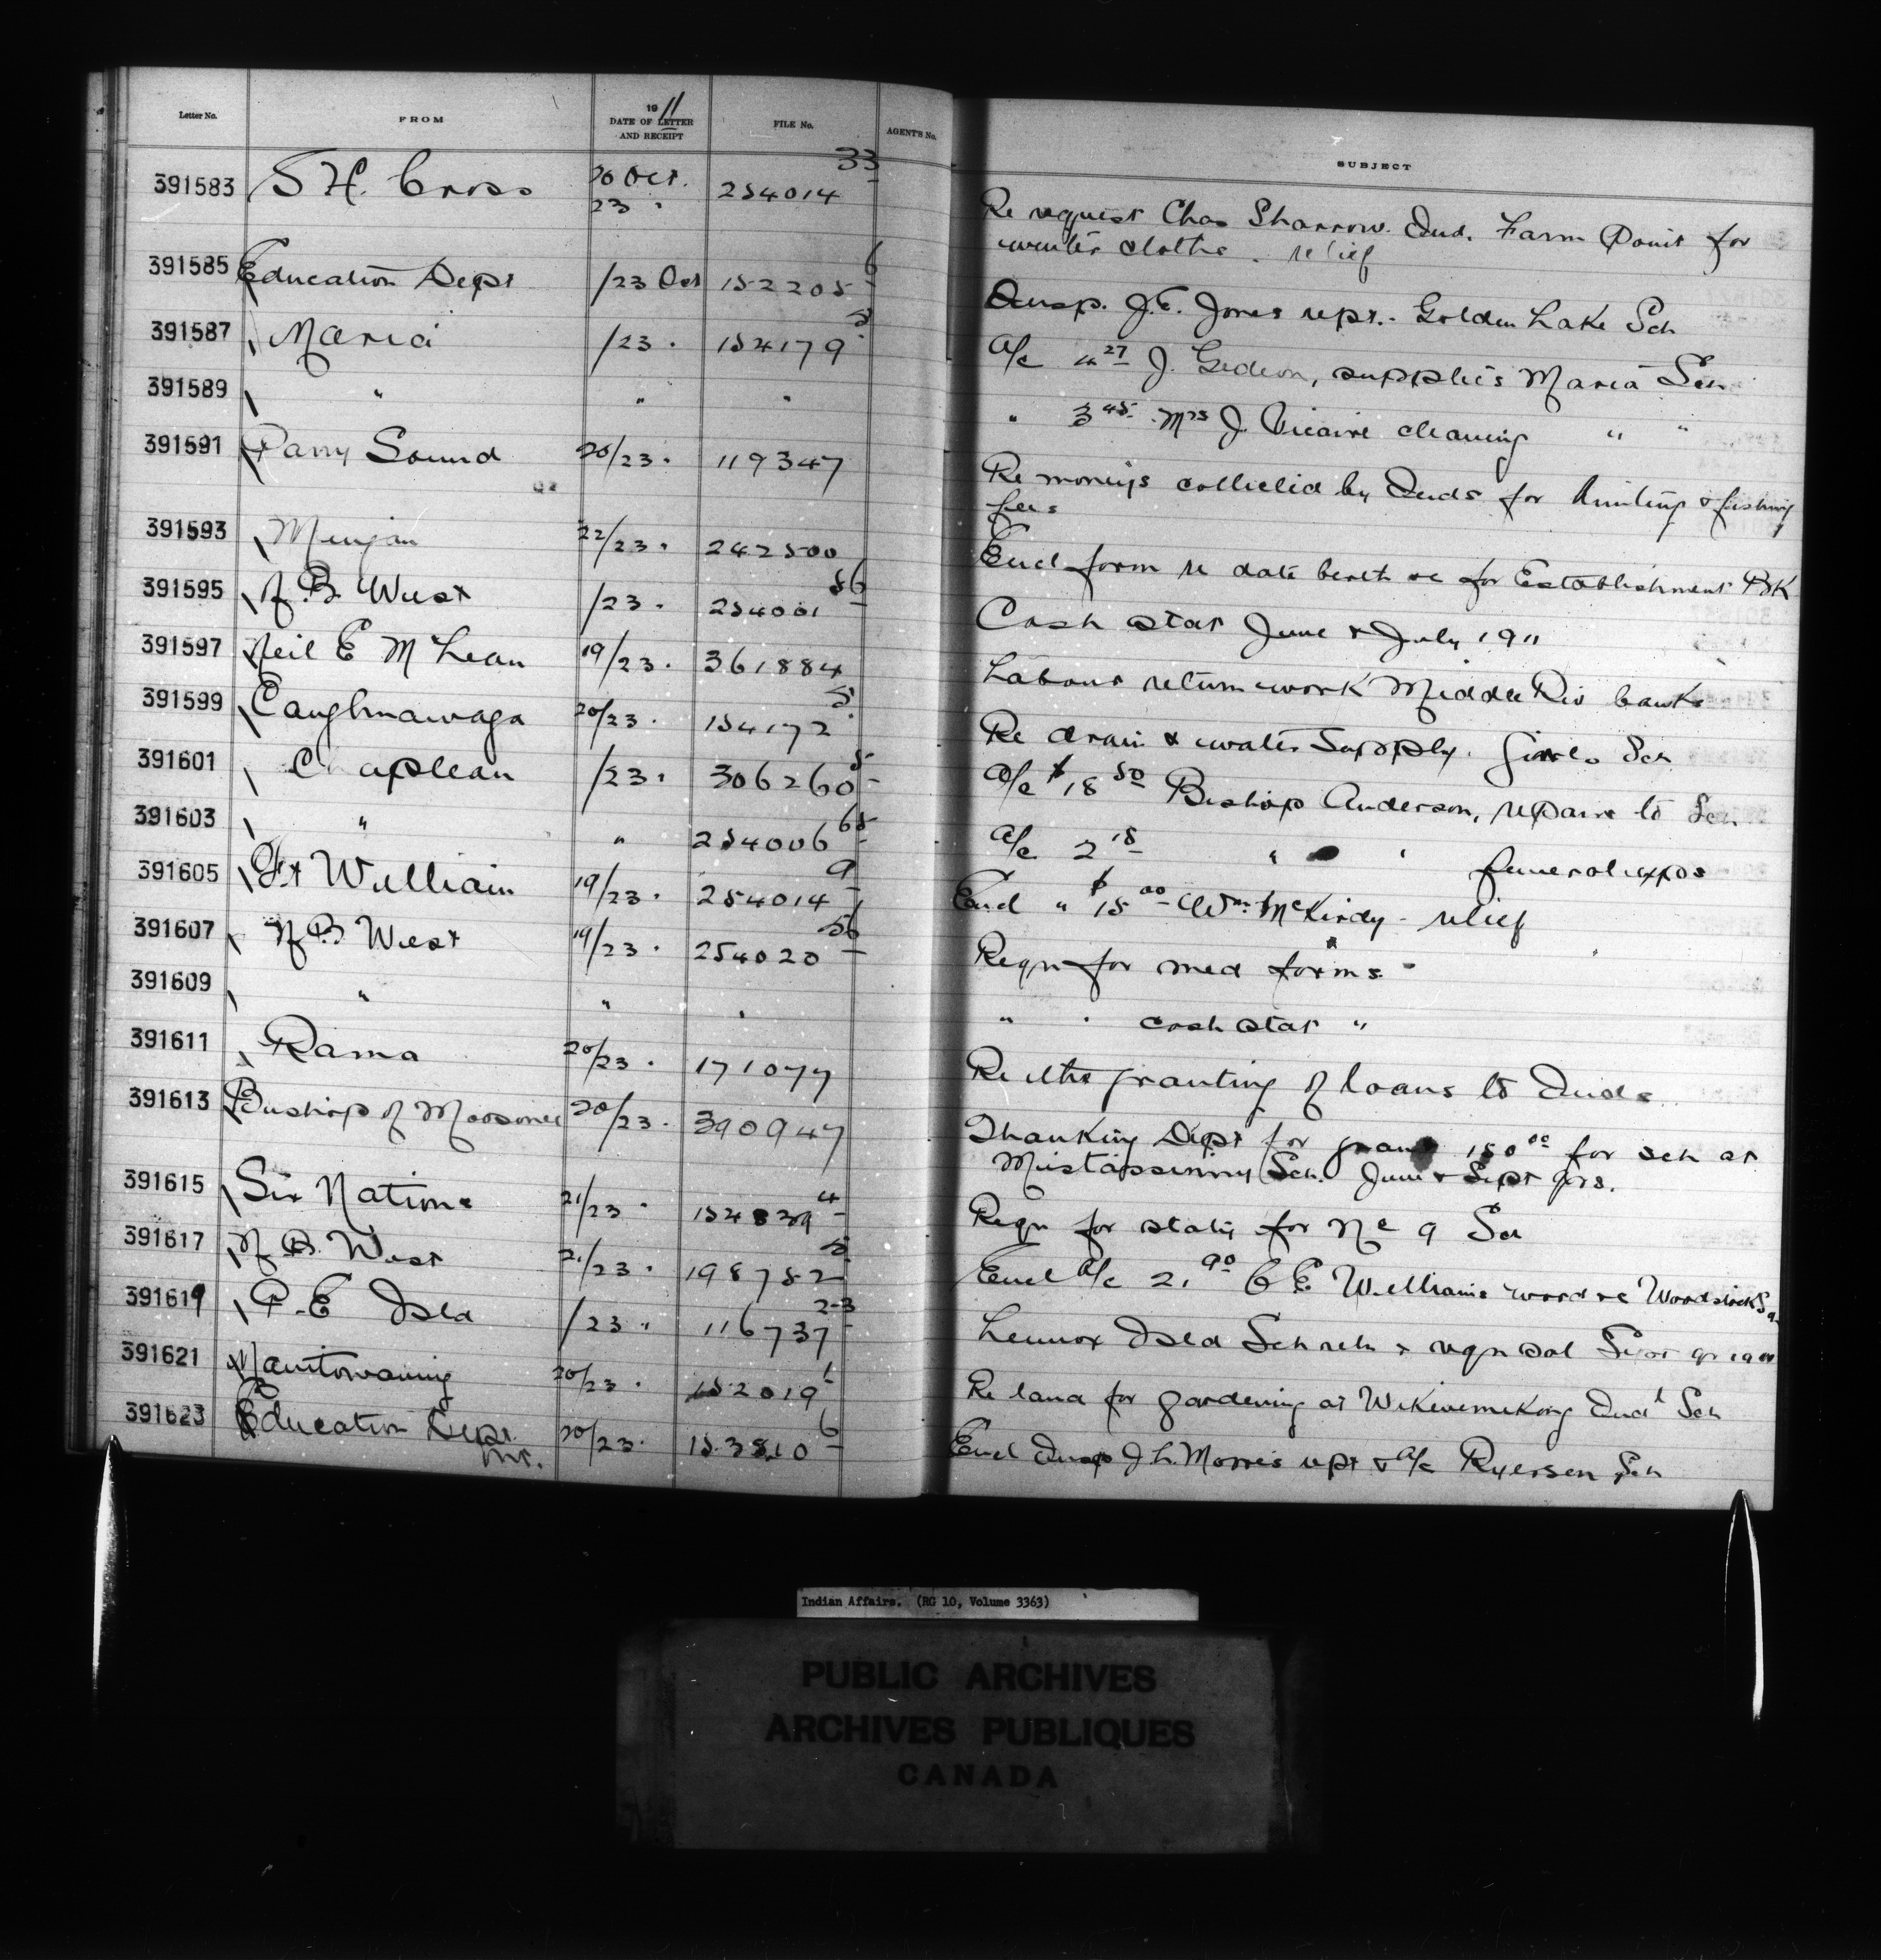 Letter No. FROM 1911 DATE OF LETTER AND RECEIPT FILE No. AGENT'S No. SUBJECT
391583 S H. Cross 20 Oct. 23 " 254014 33 Re request Chas Sharrow. Ind. Farm Point for
winter clothe. relief
391585 Education Dept /23 Oct 152205 6 Insp. J.E. Jones rept. - Golden Lake Sch
391587 Maria /23 " 154179 5 A/c 4 27 J. Gedeon, supplies Maria Sch
391589 " " " " 3 45 Mrs J. Vicaire cleaning " "
391591 Parry Sound 20/23 " 119347 Re moneys collected by Inds for hunting & fishing
fees
391593 Mingan 22/23 " 242500 Encl form re date birth &c for Establishment BK
391595 N. B. West /23 " 254001 56 Cash stat June & July 1911
391597 Neil E McLean 19/23 " 361884 Labour return work Middle Riv bank
391599 Caughnawaga 20/23 " 154172 5 Re drain & water supply. Girls Sch
391601 Chapleau /23 " 306260 5 A/c $18 50 Bishop Anderson, repairs to Sch
391603 " " 254006 65 A/c 2 15 " " funeral exps
391605 Ft William 19/23 " 254014 9 Encl " $15 00 Wm McKirdy - relief
391607 N B West 19/23 " 254020 56 Reqn for med forms
391609 " " " " " cash stat "
391611 Rama 20/23 " 171077 Re the granting of loans to Inds
391613 Bishop of Moosonee 20/23 " 390947 Thanking Dept for grant 150 00 for sch at
Mistassinny Sch. June & Sept qrs.
391615 Six Nations 21/23 " 154839 4 Reqn for staty for No 9 Sch
391617 N. B. West 21/23 " 198752 5 Encl A/c 2.90 C E Williams wood &c Woodstock Sch
391619 P.E Isld /23 " 116737 2-3 Lennox Isld Sch reth & reqn sal Sept qr 1911
391621 Manitowaning 20/23 " 152019 1 Re land for gardening at Wikwemikong Indl Sch
391623 Education Dept 20/23 " 153510 6 Encl Insp J. L. Morris rept & A/c Ryerson Sch
Ont.
Indian Affairs. (RG 10, Volume 3363)
PUBLIC ARCHIVES
ARCHIVES PUBLIQUES
CANADA